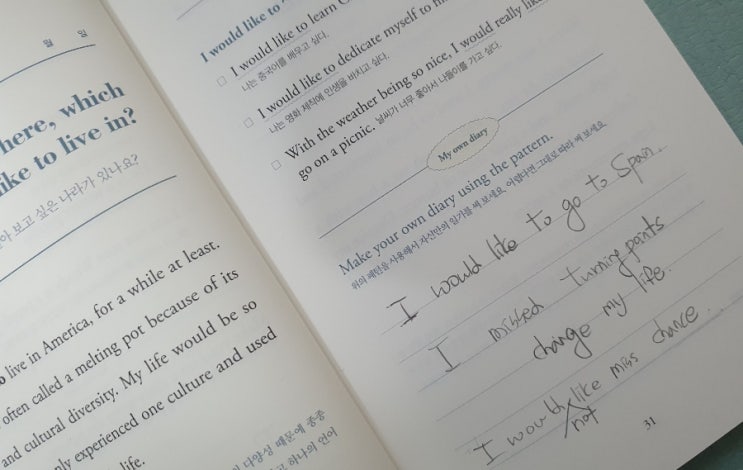 월 일
here, which
ike to live in?
아 보고 싶은 나라가 있나요?
live in America, for a while at least.
often called a melting pot because of its
and cultural diversity. My life would be so
ly experienced one culture and used
life.
다양성 때문에 종종
하나의 언어
I would like to
I would like to learn C
나는 중국어를 배우고 싶다.
I would like to dedicate myself to
나는 영화 제작에 인생을 바치고 싶다.
With the weather being so nice, I would really like
go on a picnic. 날씨가 너무 좋아서 나들이를 가고 싶다.
My own diary
Make your own diary using the pattern.
위의 패턴을 사용해서 자신만의 일기를 써 보세요. 어렵다면 그대로 따라 써 보세요.
I would like to go to Spain.
I missed turning points
change my life.
I would like miss chance.
not
31